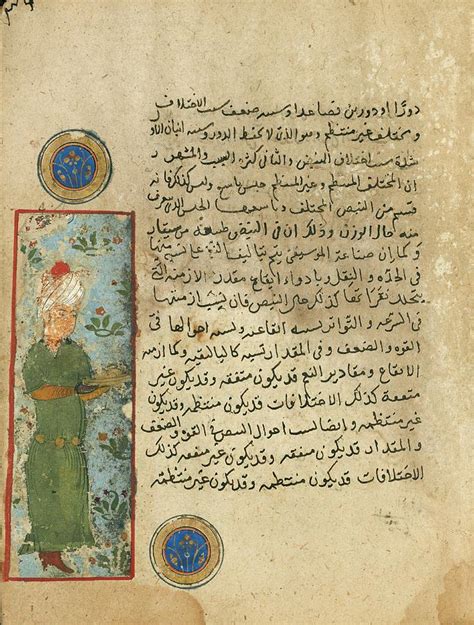 دورًا او دورين فصاعدا وسببه ضعف سبب الاختلاف
ومختلف غير منتظم وهو الذي لا يحفظ الدور وسببه
شدة سبب اختلاف النبض والثاني كثرة السبب والمشهور
ان المختلف المنتظم وغير المنتظم جنس تاسع وليس كذلك فانه
قسم من النبض المختلف الجنس الذي تعرف
منه حال الوزن وذلك ان في النبض طبيعة موسيقار
وكما ان صناعة الموسيقي يتم بتاليف النغم على نسبة بينها
في الحده والثقل وبادوار ايقاع مقدار الازمنة التي
يتخلل نقراتها كذلك حال النبض فان نسب ازمنتها
في السرعه والتواتر نسبه ايقاعيه ونسبه احوالها في
القوه والضعف وفي المقدار نسبه كالتاليفيه وكما ازمنه
الايقاع ومقادير النغم قد يكون متفقه وقد يكون غير
متفقة كذلك الاختلافات قد يكون منتظمه وقد يكون
غير منتظمه وايضا نسب احوال النبض في القوه والضعف
والمقدار قد يكون متفقه وقد يكون غير متفقه كذلك
الاختلافات قد يكون منتظمه وقد يكون غير منتظمه